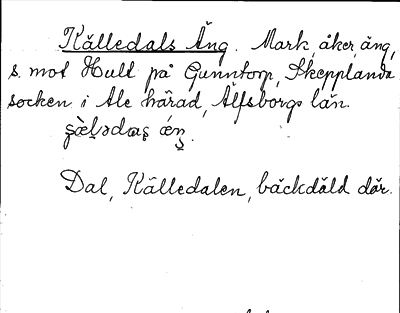 Källedals Äng. Mark, åker, äng,
s. mot Hult på Gunntorp, Skepplanda
socken i Ale härad, Älfsborgs län.
Dal, Källedalen, bäckdäld där.